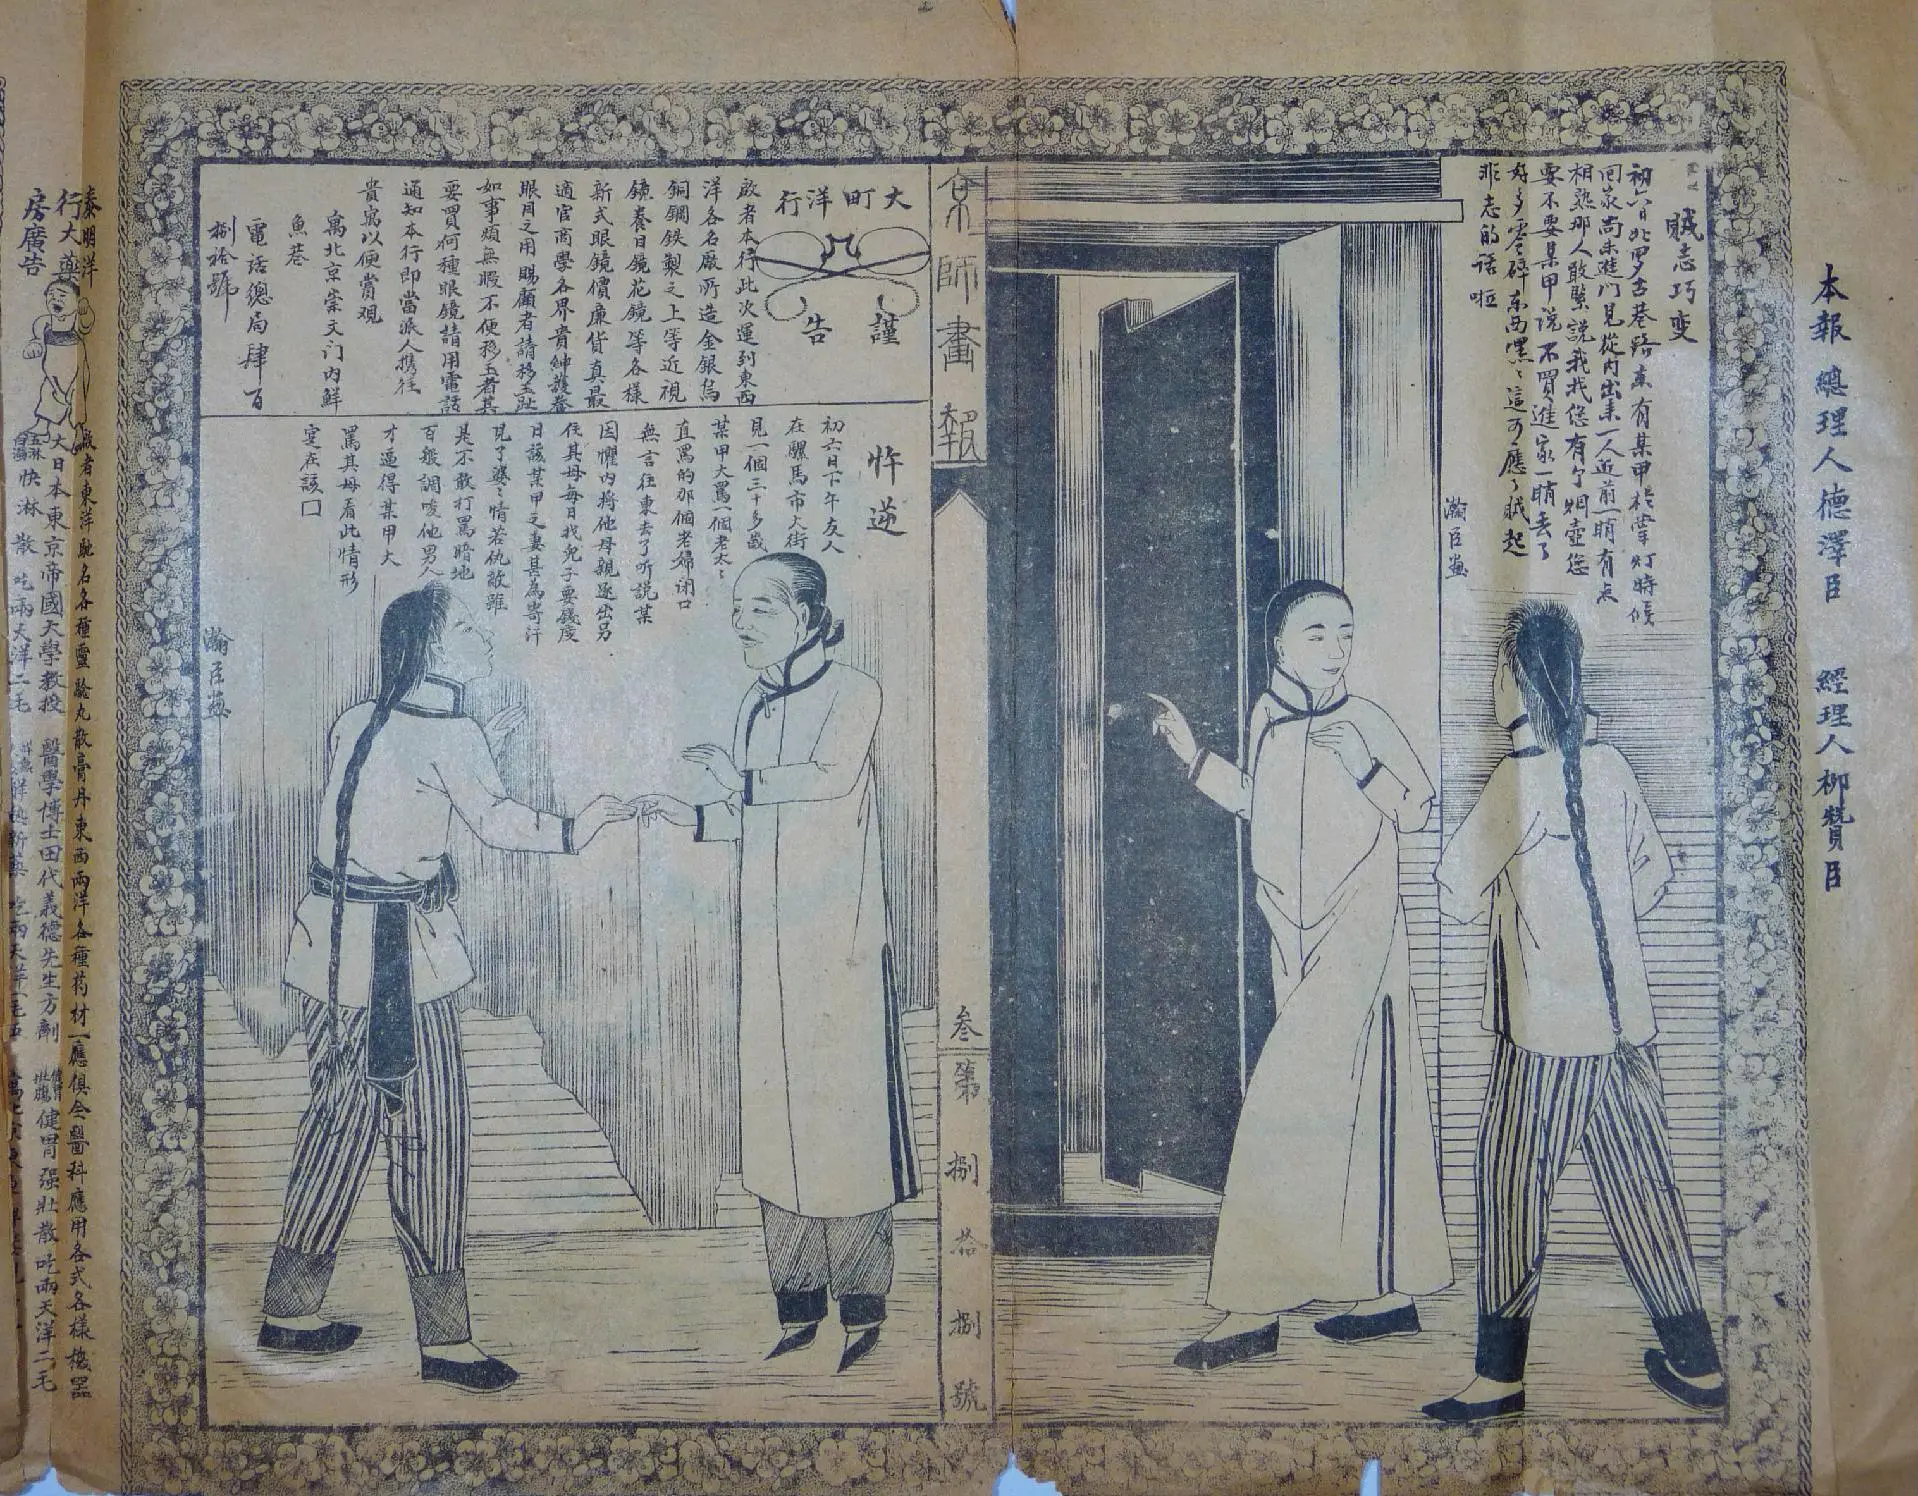 本報總理人德澤臣　經理人柳贊臣
賊志巧变
初六日北羊古巷路東有某甲於掌灯時候
回家尚未進门見從內出来一人近前一瞧有点
相熟那人敢緊説我找您有个烟壺您
要不要某甲说不買進家一瞧丢了
好多零碎东西嘿〻這可應了賊起
非志的话啦
瀚臣畫
京師畫報
叁
第捌拾捌號
大町洋行
謹告
啟者本行此次運到東西
洋各名廠所造金銀烏
銅鋼鉄製之上等近視
鏡養目鏡花鏡等各樣
新式眼鏡價廉貨真最
適官商學各界貴紳護養
眼目之用賜顧者請移玉趾
如事煩無暇不便移玉者其
要買何種眼镜請用電話
通知本行即當派人携往
貴寓以便賞观
寓北京崇文门內鮮
魚巷
電话總局肆百
捌拾號
忤逆
初六日下午友人
在騾馬市大街
見一個三十多歲
某甲大罵一個老太〻
直罵的那個老婦闭口
無言往東去了听説某
因懼内將他母親逐出另
住其母每日找兒子要錢度
日該某甲之妻其為寄汗
見了婆〻情若仇敵雖
是不敢打罵暗地
百般調唆他男人
才逼得某甲大
罵其母看此情形
实在該囗
瀚臣畫
泰明洋
行大藥
房廣告
啟者東洋馳名各種靈驗丸散膏丹東西兩洋各種葯材一應俱全醫科應用各式各樣機器
大日本東京帝國大學教授　醫學博士田代義德先生方劑　健胃强壯散吃兩天洋二毛
五淋白濁快淋散吃兩天洋二毛